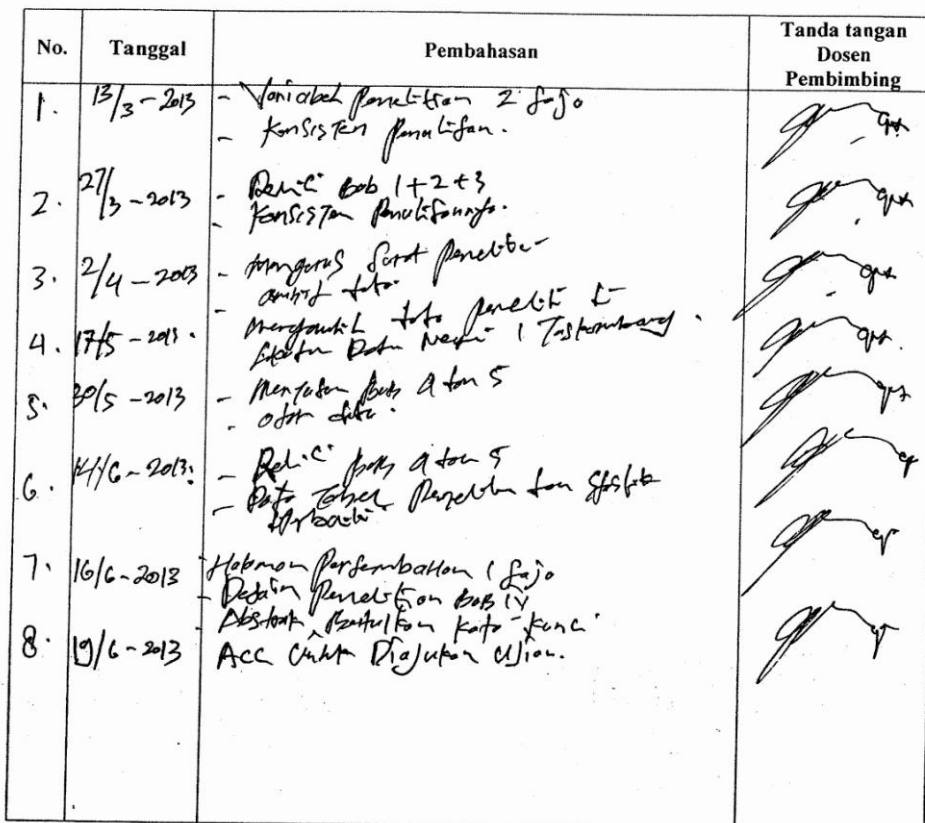 No. Tanggal Pembahasan Tanda tangan
Dosen
Pembimbing
1. 13/3-2013 - Variabel Penelitian 2 saja
- Konsisten Penulisan.
2. 27/3-2013 - Revisi Bab 1+2+3
- Konsisten Penulisannya.
3. 2/4-2013 - Mengurus Surat Peneliti-
4. 17/5-2013. - Mengambil data peneliti di
Negeri 1
5. 30/5-2013 - Bab 4 dan 5
- data.
6. 14/6-2013. - Revisi Bab 4 dan 5
- Data Tabel Penelitian dan
7. 16/6-2013 - Halaman Persembahan 1 saja
- Desain Penelitian BAB IV
Abstrak Betulkan Kata-kunci
8. 19/6-2013 Acc Untuk Diajukan Ujian.